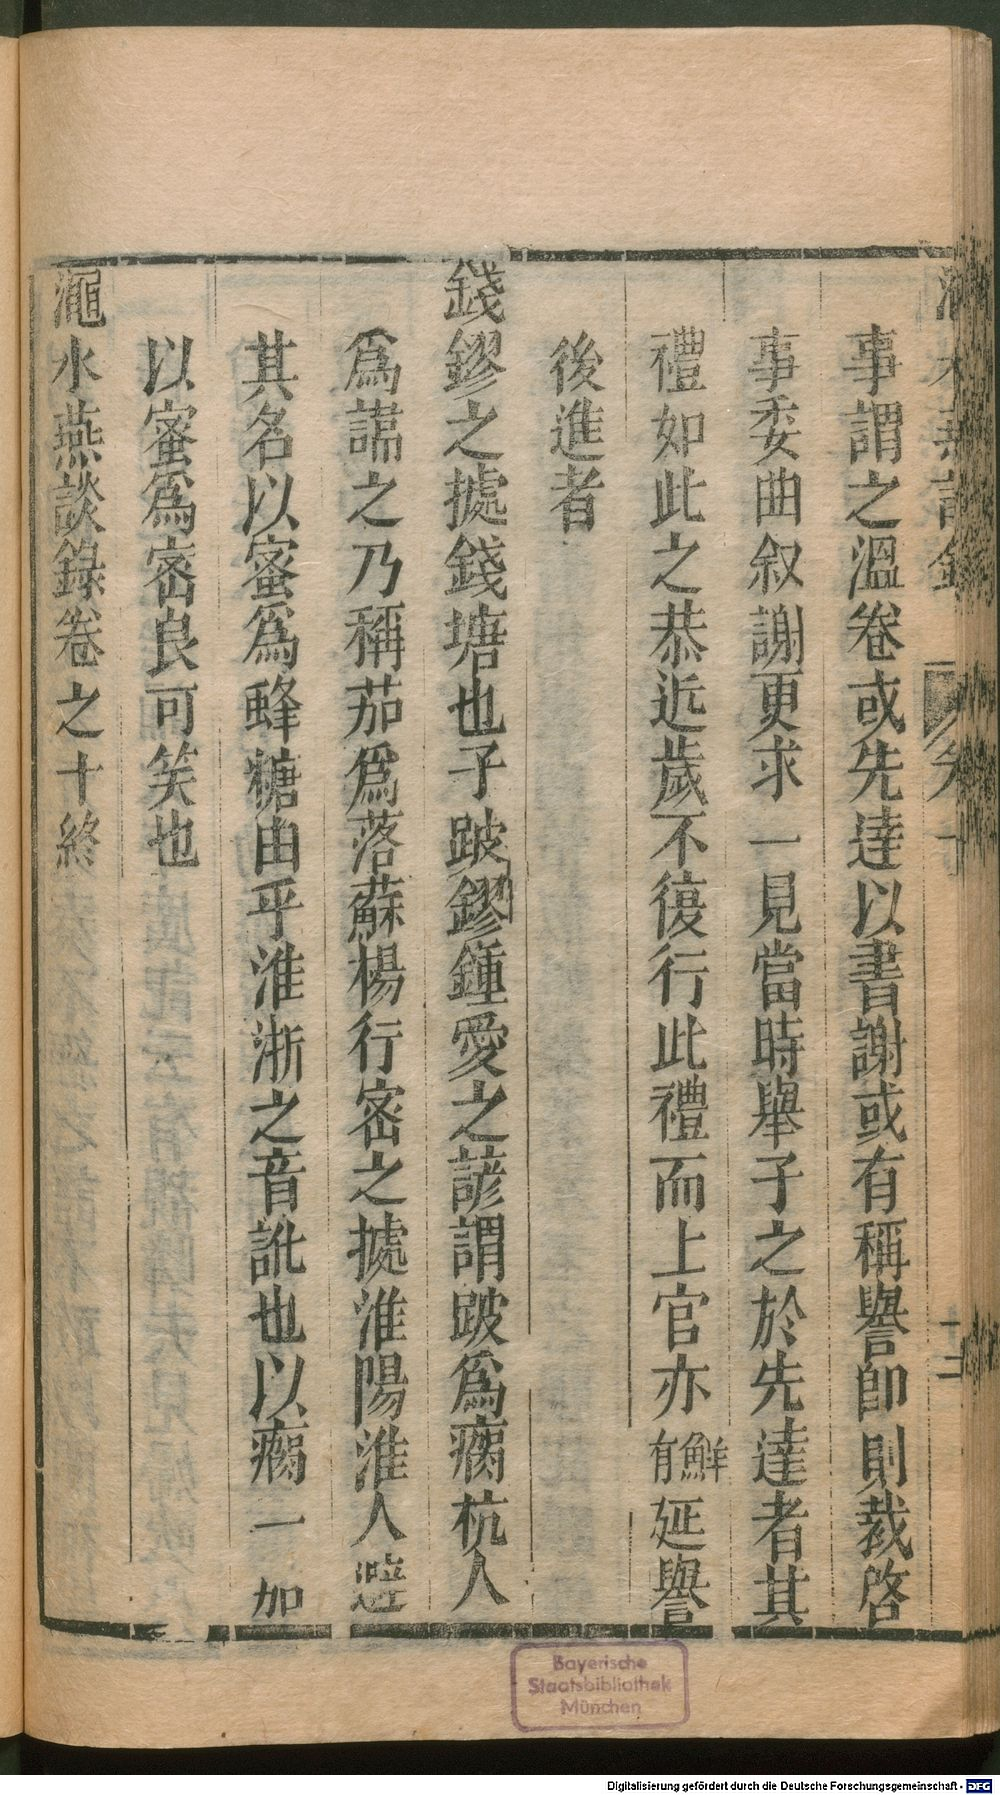 事謂之溫卷或先達以書謝或有稱譽卽則裁啓
事委曲叙謝更求一見當時舉子之於先達者其
禮如此之恭近歲不復行此禮而上官亦鮮有延譽
後進者
錢鏐之據錢塘也子跛鏐鍾愛之諺謂跛爲瘸杭人
爲諱之乃稱茄爲落蘇楊行密之據淮陽淮人避
其名以蜜爲蜂糖由乎淮浙之音訛也以瘸一加
以蜜爲密良可笑也
澠水燕談錄卷之十終
十二
Bayerische
Staatsbibliothek
München
Digitalisierung gefördert durch die Deutsche Forschungsgemeinschaft - DFG